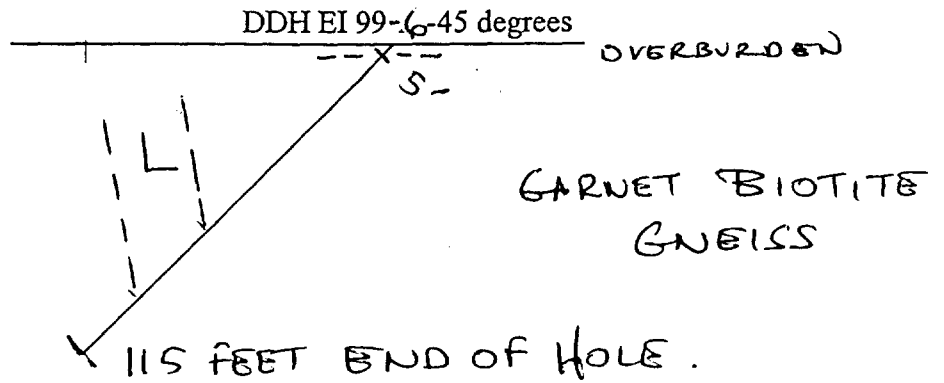 DDH EI 99-6-45 degrees
OVERBURDEN
S-
L
GARNET BIOTITE
GNEISS
115 FEET END OF HOLE.